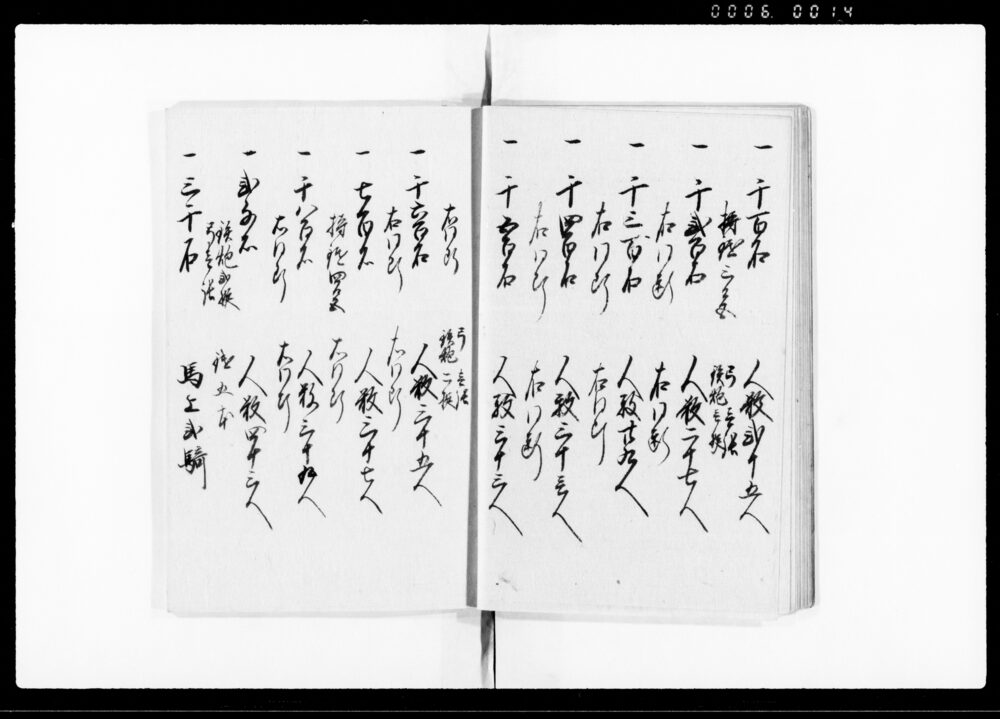 0006.0014
一 千百石 人数弐十五人
持鎗三本 弓壱張 鉄炮壱挺
一 千弐百石 人数二十七人
右同断 右同断
一 千三百石 人数廿九人
右同断 右同断
一 千四百石 人数三十壱人
右同断 右同断
一 千五百石 人数三十三人
右同断 弓壱張 鉄炮二挺
一 千六百石 人数三十五人
右同断 右同断
一 千七百石 人数三十七人
持鎗四本 右同断
一 千八百石 人数三十九人
右同断 右同断
一 弐千石 人数四十三人
鉄炮弐挺 弓壱張 鎗五本
一 三千石 馬上弐騎